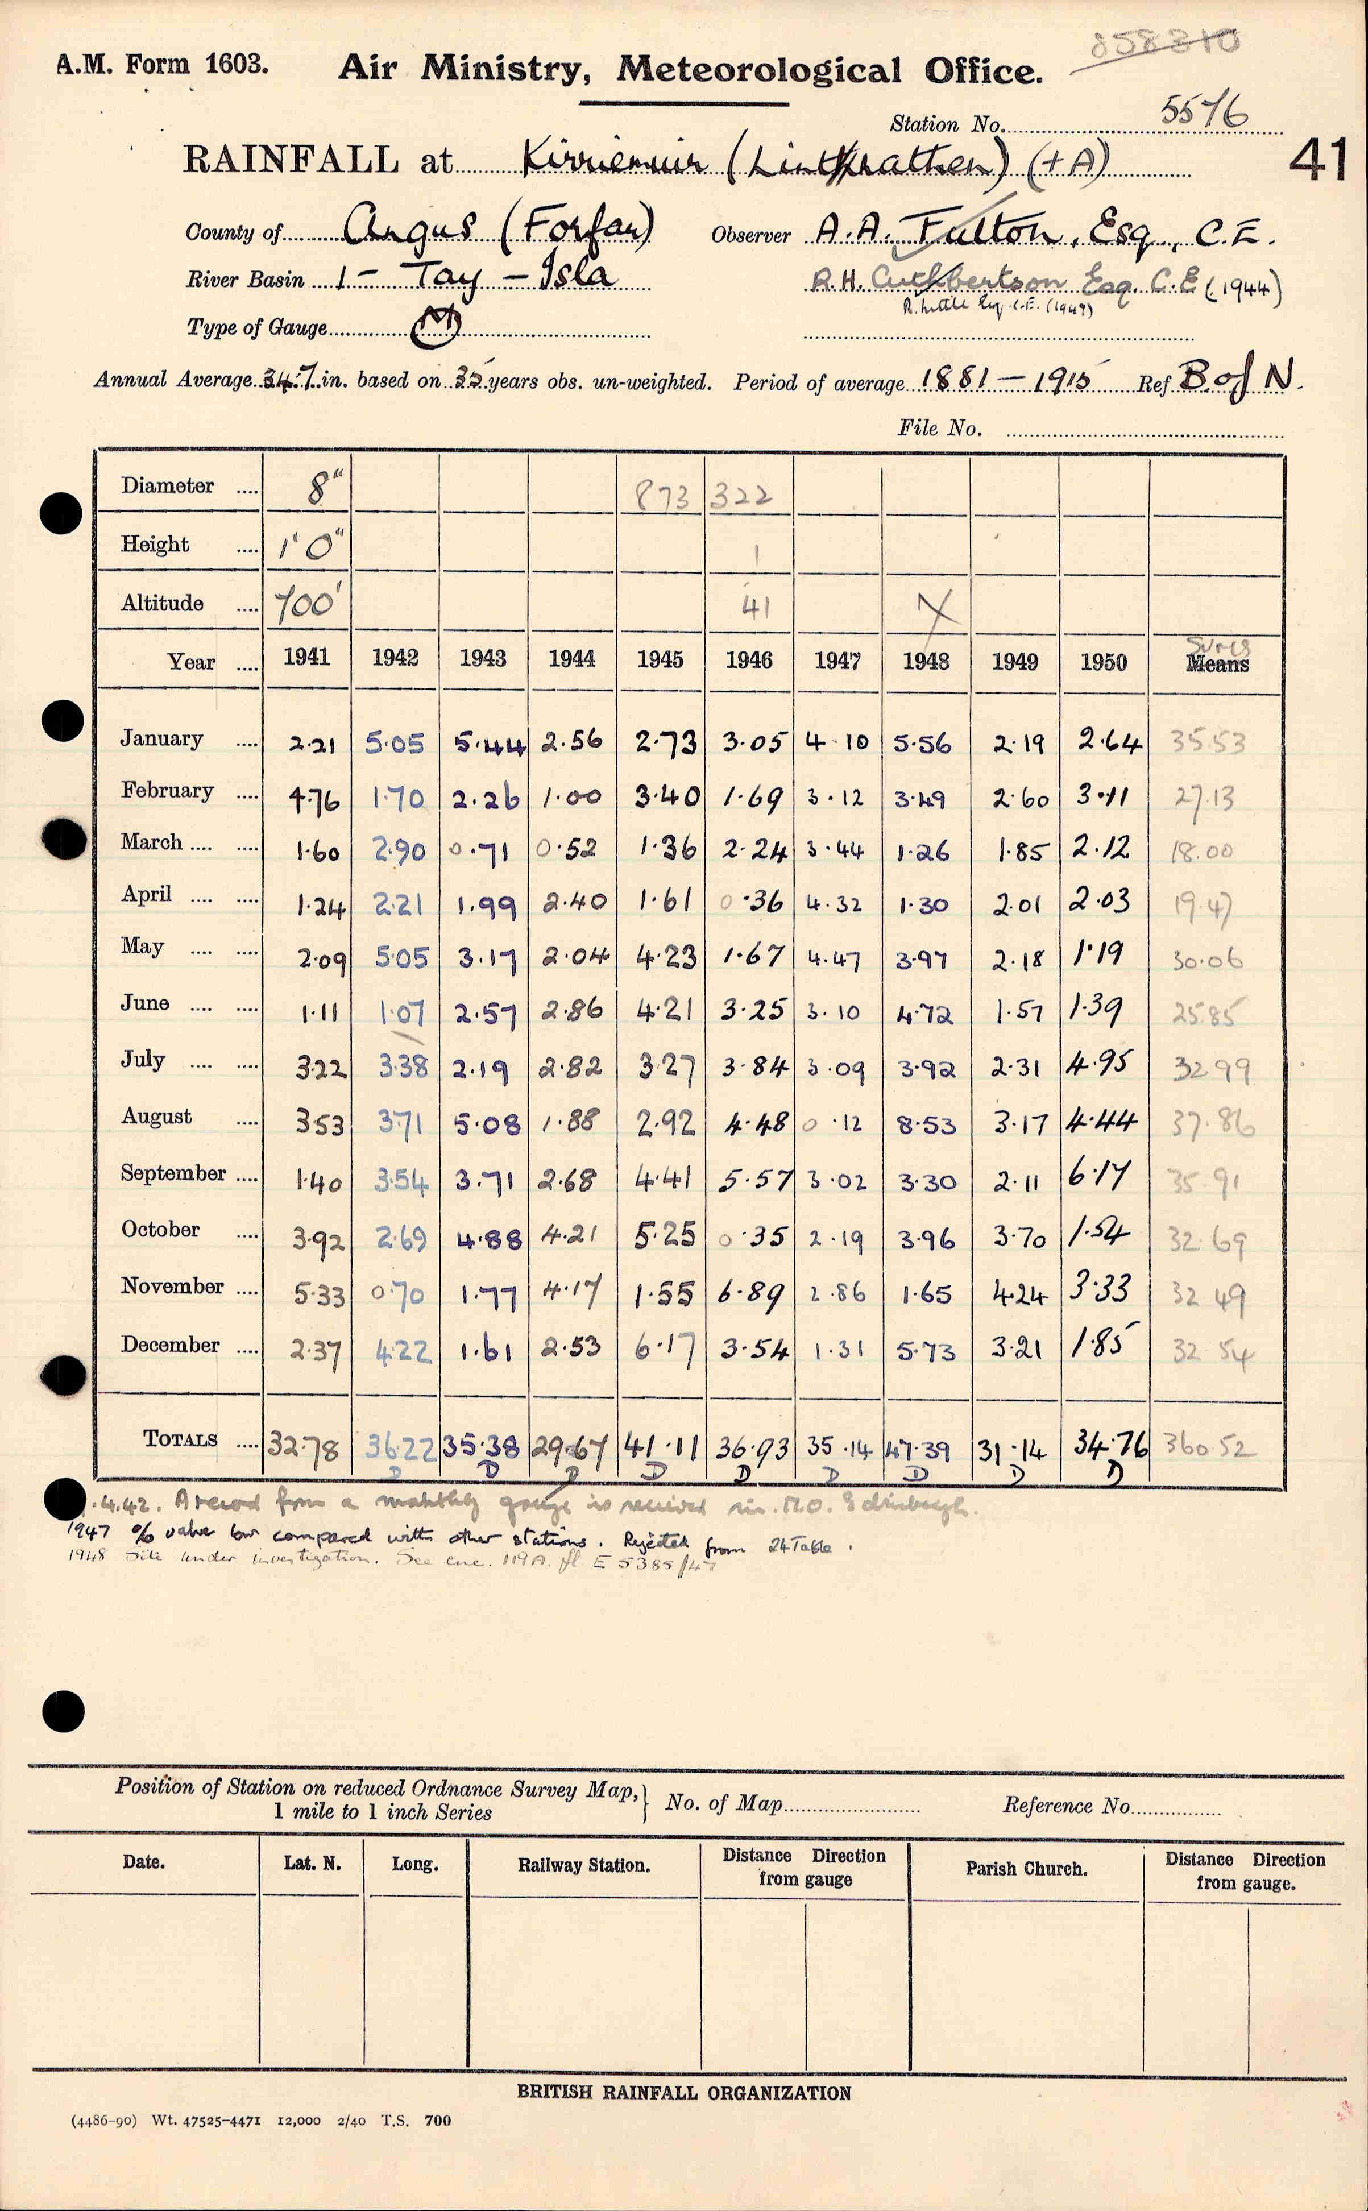 858310
A.M. Form 1603. Air Ministry, Meteorological Office.
Station No. 5576
RAINFALL at Kirriemuir (Lintrathen) (+A) 41
County of Angus (Forfar) Observer A.A. Fulton, Esq., C.E.
River Basin 1 - Tay - Isla R.H. Cuthbertson Esq. C.E (1944)
R. Little Esq. C.E. (1949)
Type of Gauge M
Annual Average 34.7 in. based on 35 years obs. un-weighted. Period of average 1881-1915 Ref B. of N.
File No.
Diameter .... 8" 873 322
Height .... 1'0" 1
Altitude .... 700' 41 X
Year .... 1941 1942 1943 1944 1945 1946 1947 1948 1949 1950 Means Sums
January .... 2.21 5.05 5.44 2.56 2.73 3.05 4.10 5.56 2.19 2.64 35.53
February .... 4.76 1.70 2.26 1.00 3.40 1.69 3.12 3.49 2.60 3.11 27.13
March .... .... 1.60 2.90 0.71 0.52 1.36 2.24 3.44 1.26 1.85 2.12 18.00
April .... .... 1.24 2.21 1.99 2.40 1.61 0.36 4.32 1.30 2.01 2.03 19.47
May .... .... 2.09 5.05 3.17 2.04 4.23 1.67 4.47 3.97 2.18 1.19 30.06
June .... .... 1.11 1.07 2.57 2.86 4.21 3.25 3.10 4.72 1.57 1.39 25.85
July .... .... 3.22 3.38 2.19 2.82 3.27 3.84 3.09 3.92 2.31 4.95 32.99
August .... 3.53 3.71 5.08 1.88 2.92 4.48 0.12 8.53 3.17 4.44 37.86
September .... 1.40 3.54 3.71 2.68 4.41 5.57 3.02 3.30 2.11 6.17 35.91
October .... 3.92 2.69 4.88 4.21 5.25 0.35 2.19 3.96 3.70 1.54 32.69
November .... 5.33 0.70 1.77 4.17 1.55 6.89 2.86 1.65 4.24 3.33 32.49
December .... 2.37 4.22 1.61 2.53 6.17 3.54 1.31 5.73 3.21 1.85 32.54
TOTALS .... 32.78 36.22 35.38 29.67 41.11 36.93 35.14 47.39 31.14 34.76 360.52
D D D D D D D D D
.4.42. A record from a monthly gauge is received in M.O. Edinburgh.
1947 % value low compared with other stations. Rejected from 24 Table.
1948 Site under investigation. See enc. 119A. fl E 5385/47
Position of Station on reduced Ordnance Survey Map,} No. of Map Reference No.
1 mile to 1 inch Series
Date. Lat. N. Long. Railway Station. Distance from gauge Direction Parish Church. Distance Direction from gauge.
BRITISH RAINFALL ORGANIZATION
(4486-90) Wt. 47525-4471 12,000 2/40 T.S. 700